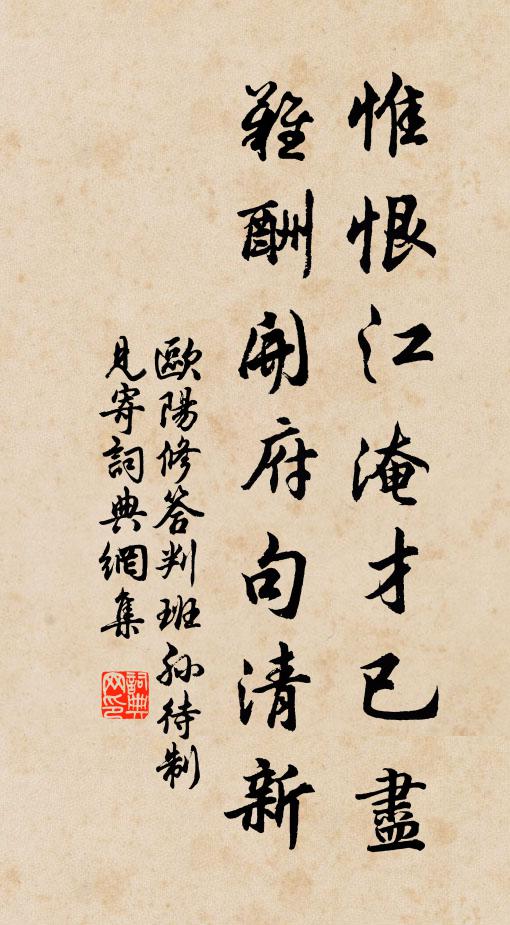 惟恨江淹才已盡
難酬開府句清新
歐陽修答判班孫待制
見寄詞典網集
詞典網印